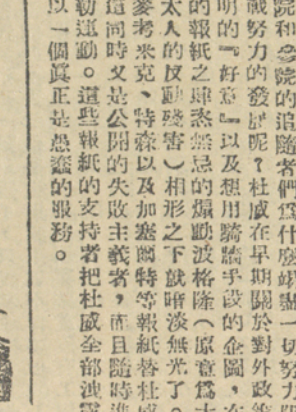 院和參院的追隨者們爲什麼竭盡一切努力
戰努力的發展呢?杜威在早期關於對外政
明的『好意』以及想用騎牆手段的企圖,
的報紙之肆無忌憚的煽動波格隆(原意爲
太人的反動殘害)相形之下就暗淡無光了
參考米克、特森以及加塞爾特等報紙替杜威
這同時又是公開的失敗主義者,而且隨時
勒運動。這些報紙的支持者把杜威全部洩
以一個眞正是愚蠢的服務。